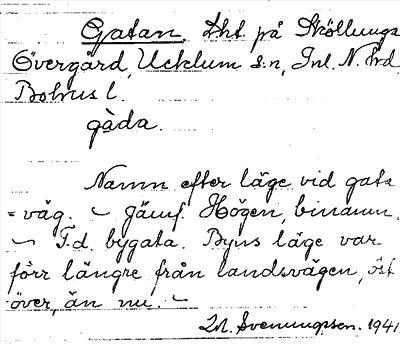 Gatan. Lht. på Sköllunga
Övergård, Ucklum s:n, Inl. N. hd,
Bohus l.
gàda.
Namn efter läge vid gata
= väg. ~ Jämf. Högen, binamn.
~ F.d. bygata. Byns läge var
förr längre från landsvägen, öst
över, än nu. ~
Ivl. Svenungsson. 1941